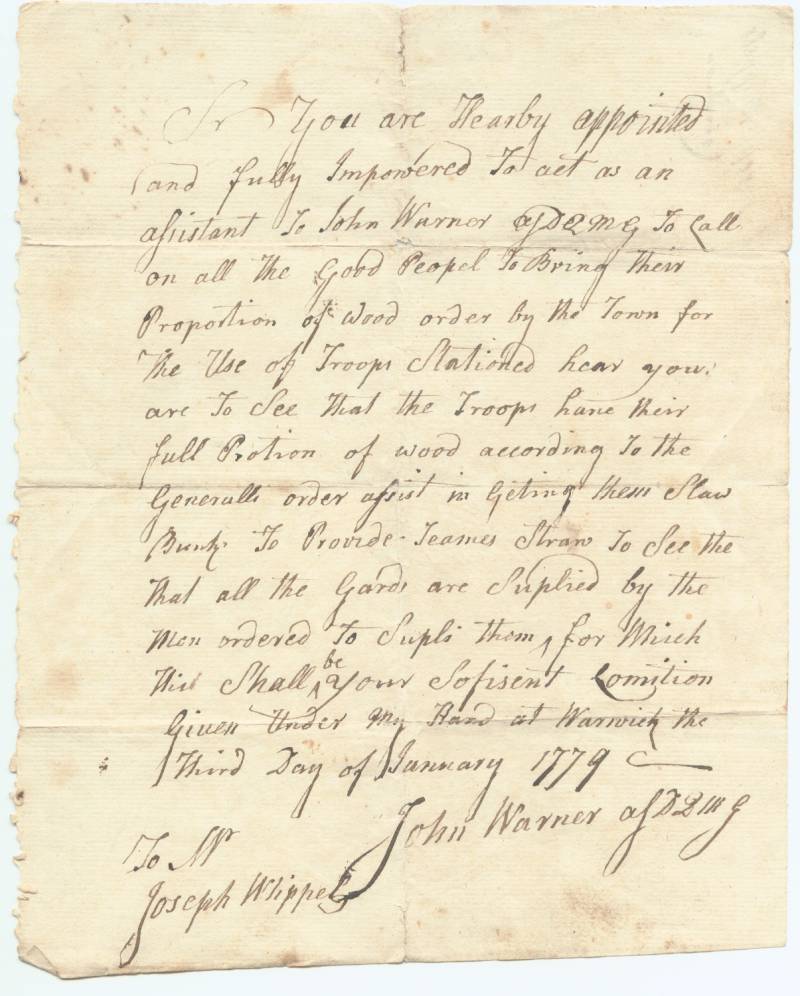 Sr You are Hearby appointed
and fully Impowered To act as an
assistant To John Warner asDQMG To Call
on all the Good Peopel To Bring their
Proportion of wood order by the Town for
The Use of Troops Stationed hear you
are To See That the Troops have their
full Protion of wood according To the
Generalls order assist in Geting them Slaw
Bunks To Provide Teames Straw To See the
That all the Gards are Suplied by the
Men ordered To Supli them ^ for Which
this Shall ^be your Sofisent Comition
Given Under My Hand at Warwick the
Third Day of January 1779
John Warner asDQMG
To Mr
Joseph Whippel